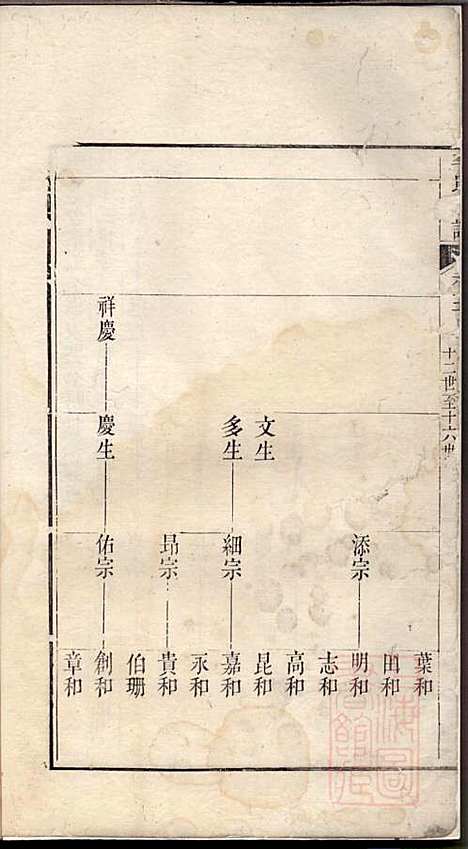 十二世至十六世
葉和
田和
添宗
明和
志和
高和
文生
昆和
多生
細宗
嘉和
永和
昻宗
貴和
伯珊
祥慶
慶生
佑宗
創和
章和